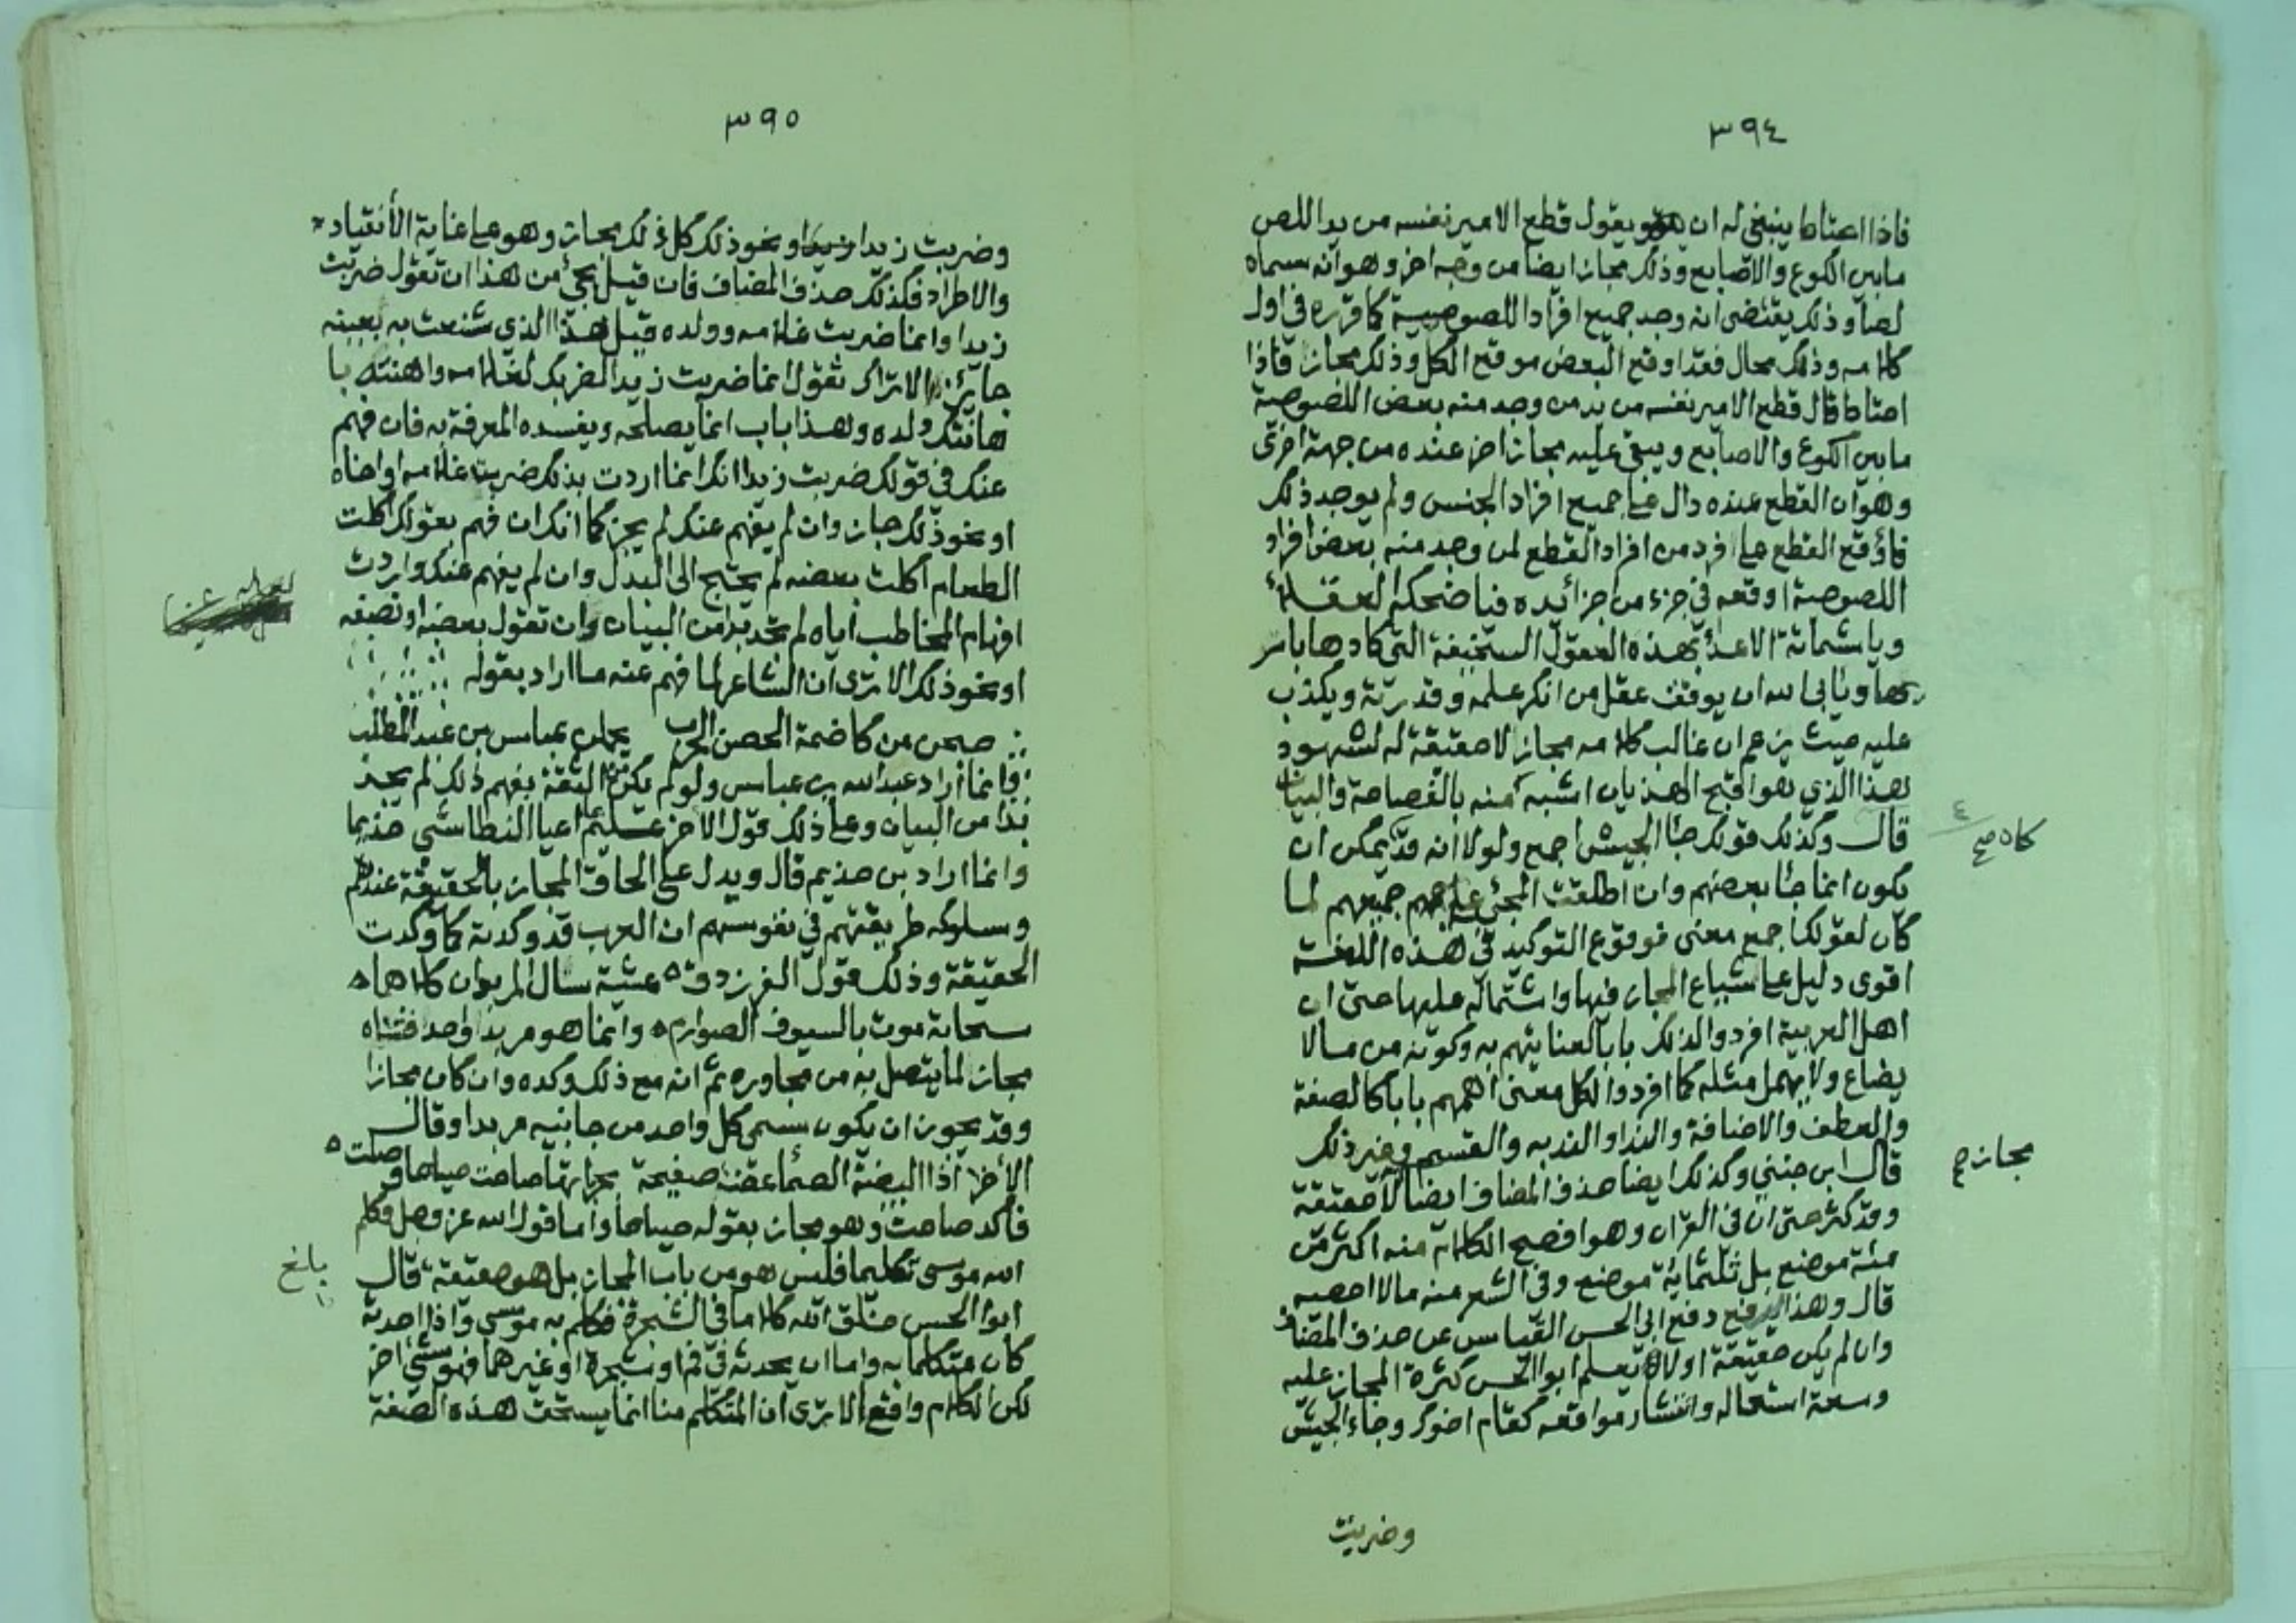 ٣٩٤
فاذا احتاط ينبغي له ان يقول قطع الامير نفسه من يد اللص
مابين الكوع والاصابع وذلك مجاز ايضا من وجه اخر وهو انه سماه
لصا وذلك يقتضي انه وجد جميع افراد اللصوصية كما قرره في اول
كلامه وذلك محال فقد اوقع البعض موقع الكل وذلك مجاز فاذا
احتاط قال قطع الامير نفسه من يد من وجد منه بعض اللصوصية
مابين الكوع والاصابع ويبقى عليه مجاز اخر عنده من جهة اخرى
وهو ان القطع عنده دال على جميع افراد الجنس ولم يوجد ذلك
فاوقع القطع على فرد من افراد القطع لمن وجد منه بعض افراد
اللصوصية اوقعه في جزء من اجزاء يده فيا ضحكة العقلاء
ويا شماتة الاعداء بهذه العقول السخيفة التي كادها باسر
يها ويأبى الله ان يوفق عقل من انكر علمه وقدرته ويكذب
عليه حيث يزعم ان غالب كلامه مجاز لا حقيقة له لشهود
هذا الذي هو اقبح الهذيان اشبه منه بالفصاحة والبيان
قال وكذلك قولك جاء الجيش اجمع ولولا انه قد يمكن ان
يكون انما جاء بعضهم وان اطلقت المجئ على جميعهم لما
كان لقولك اجمع معنى فوقوع التوكيد في هذه اللغة
اقوى دليل على شياع المجاز فيها واشتماله عليها حتى ان
اهل العربية افردوا لذلك بابا لعنايتهم به وكونه من ما لا
يضاع ولا يهمل مثله كما افردوا لكل معنى اهمهم بابا كالصفة
والعطف والاضافة والندا والندبه والقسم وغير ذلك
قال ابن جني وكذلك ايضا حذف المضاف ايضا لا حقيقة
وقد كثر حتى ان في القران وهو افصح الكلام منه اكثر من
مئة موضع بل ثلثماية موضع وفي الشعر منه مالا احصيه
قال وهذا يدفع دفع ابي الحسن القياس عن حذف المضاف
وان لم يكن حقيقة اولا يعلم ابو الحسن كثرة المجاز عليه
وسعة استعماله وانتشار مواقعه كقام اخوك وجاء الجيش
وضربت
كان صح
٤
مجاز صح
٣٩٥
وضربت زيدا ونحو ذلك كل ذلك مجاز وهو على غاية الأنقياد
والاطراد فكذلك حذف المضاف فان قيل يجئ من هذا ان تقول ضربت
زيدا وانما ضربت غلامه وولده قيل هذا الذي شنعت به بعينه
جايز الا تراك تقول انما ضربت زيدا لضربك لغلامه واهنته با
هانتك ولده وهذا باب انما يصلحه ويفسده المعرفة به فان فهم
عنك في قولك ضربت زيدا انك انما اردت بذلك ضربت غلامه او اخاه
او نحو ذلك جاز وان لم يفهم عنك لم يجز كما انك ان فهم بقولك اكلت
الطعام اكلت بعضه لم يحتج الى البدل وان لم يفهم عنك واردت
افهام المخاطب اياه لم تجد بدا من البيان وان تقول بعضه او نصفه
او نحو ذلك الا ترى ان الشاعر لما فهم عنه ما اراد بقوله
صبحن من كاضمة الحصن الخرب يحملن عباس بن عبد المطلب
فانما اراد عبد الله بن عباس ولو لم يكن الثقة بفهم ذلك لم يجد
بدا من البيان وعلى ذلك قول الاخر عليم اعيا النطاسي حذيما
وانما اراد بن حذيم قال ويدل على الحاق المجاز بالحقيقة عندهم
وسلوكه طريقتهم في نفوسهم ان العرب قد وكدته كما وكدت
الحقيقة وذلك قول الفرزدق ٥ عشية سال المربدان كلاهما
سحابة موت بالسيوف الصوارم ٥ وانما هو مربد واحد فثناه
مجاز لما يتصل به من مجاوره ثم انه مع ذلك وكده وان كان مجازا
وقد يجوز ان يكون سمي كل واحد من جانبيه مربدا وقال
الأخر اذا البيضة الصماء عضت صفيحة بحربائها صاحت صياحا وصلت ٥
فاكد صاحت وهو مجاز بقوله صياحا واما قول الله عز وجل وكلم
الله موسى تكليما فليس هو من باب المجاز بل هو حقيقة قال
ابوا الحسن خلق الله كلاما في الشجرة فكلم به موسى واذا احدثه
كان متكلما به واما ان يحدثه في فم او شجرة او غيرهما فهو شئ اخر
لكن الكلام واقع الا ترى ان المتكلم منا انما يستحق هذه الصفة
بلغ